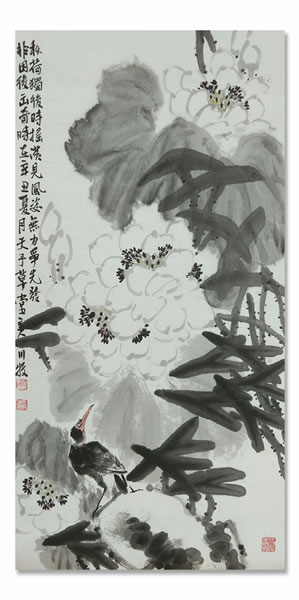 秋荷獨後時搖落見風姿無力爭先發
非因後出奇時在辛丑夏月天子草堂